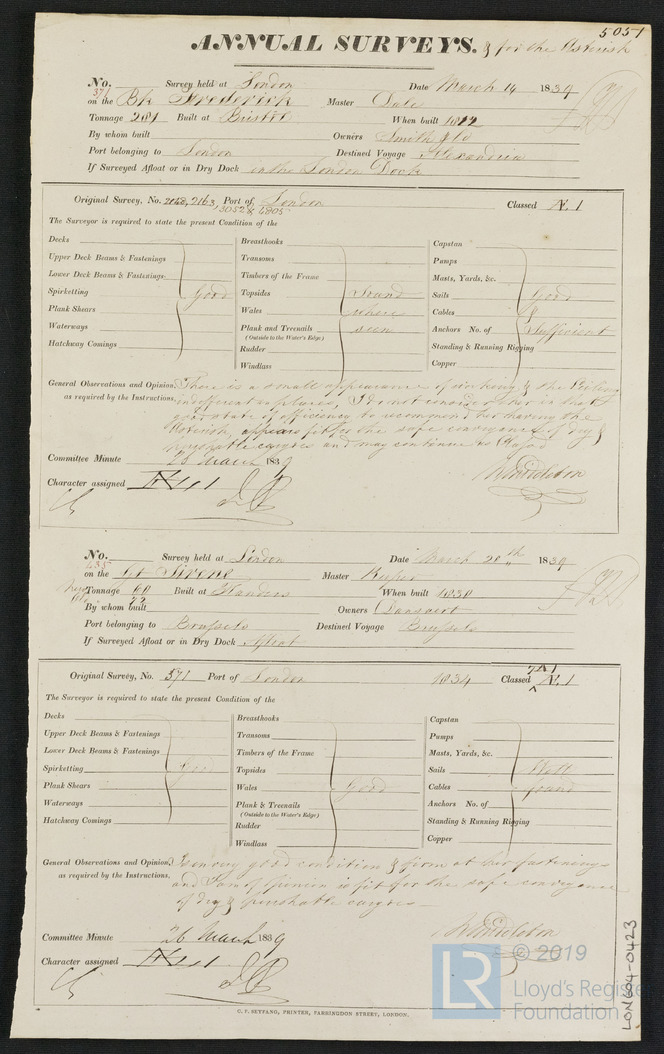 5051
ANNUAL SURVEYS. & for the Asterisk
No. Survey held at London Date March 14 1839
on the Bk Frederick Master Dale
Tonnage 281 Built at Bristol When built 1812
By whom built Owners Smith & Co
Port belonging to London Destined Voyage Alexandria
If Surveyed Afloat or in Dry Dock in the London Dock
Original Survey, No. 2163, Port of London Classed Æ 1
3052 & 4805
The Surveyor is required to state the present Condition of the
Decks
Upper Deck Beams & Fastenings
Lower Deck Beams & Fastenings
Spirketting Good
Plank Shears
Waterways
Hatchway Comings
Breasthooks
Transoms
Timbers of the Frame
Topsides Sound
Wales where
Plank and Treenails seen
(Outside to the Water's Edge)
Rudder
Windlass
Capstan
Pumps
Masts, Yards, &c.
Sails Good
Cables &
Anchors No. of Sufficient
Standing & Running Rigging
Copper
General Observations and Opinion, There is a small appearance of working & the Ceiling
as required by the Instructions. indifferent in places, I do not consider her in that
good state of efficiency to recommend her having the
Asterisk, appears fit for the safe conveyance of dry &
perishable cargoes and may continue as Classed
Committee Minute 23 March 1839
Character assigned Æ 1
No. Survey held at London Date March 20th 1839
on the Gt Sirene Master
Tonnage 60 Built at Flanders When built 1830
By whom built Owners Dansaert
Port belonging to Brussels Destined Voyage Brussels
If Surveyed Afloat or in Dry Dock Afloat
Original Survey, No. 571 Port of London 1834 Classed Æ 1
The Surveyor is required to state the present Condition of the
Decks
Upper Deck Beams & Fastenings
Lower Deck Beams & Fastenings
Spirketting Good
Plank Shears
Waterways
Hatchway Comings
Breasthooks
Transoms
Timbers of the Frame
Topsides
Wales Good
Plank & Treenails
(Outside to the Water's Edge)
Rudder
Windlass
Capstan
Pumps
Masts, Yards, &c.
Sails Well
Cables found
Anchors No. of
Standing & Running Rigging
Copper
General Observations and Opinion, In very good condition & firm at her fastenings
as required by the Instructions. and I am of opinion is fit for the safe conveyance
of dry & perishable cargoes
Committee Minute 26 March 1839
Character assigned
C. F. SEYFANG, PRINTER, FARRINGDON STREET, LONDON.
LON604-0423
LR © 2019
Lloyd's Register
Foundation